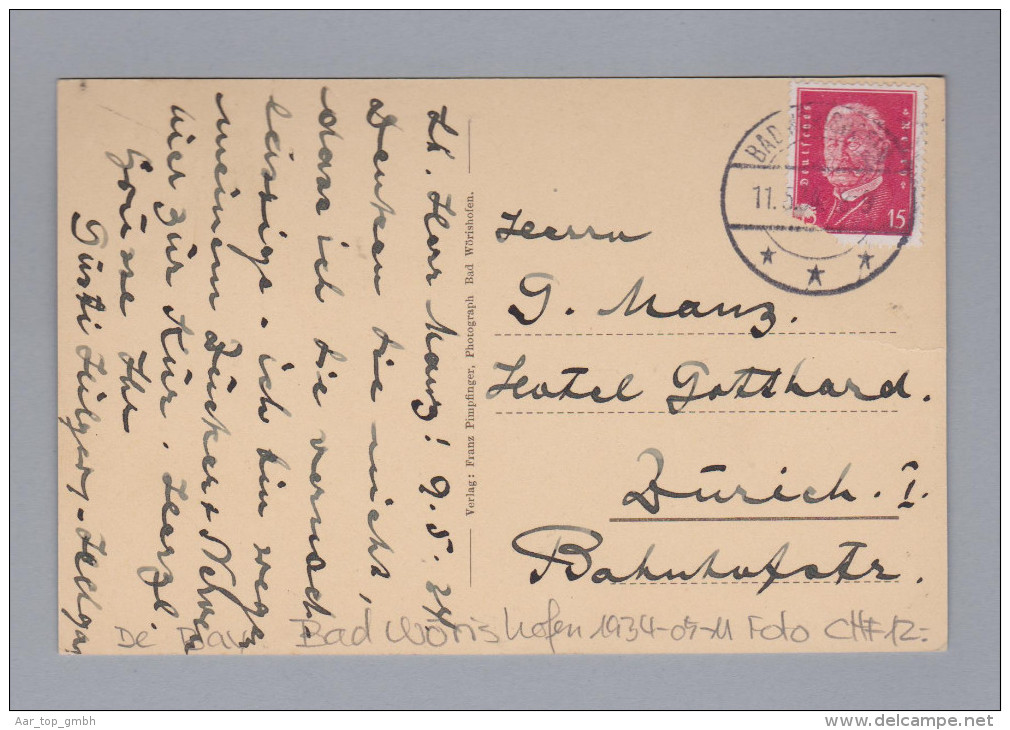 Lb. Herr Manz! 9.5.34
Denken Sie nicht,
dass ich die vernach
lässige - ich bin wegen
meinem Zucker & Nerven
hier zur Kur. Herzl.
Grüsse Ihr
Gusti
Verlag: Franz Pimpfinger, Photograph Bad Wörishofen.
BAD
11.5.
Deutsches
Reich
15
Herrn
G. Manz.
Hotel Gotthard.
Zürich. I.
Bahnhofstr.
De Bay Bad Wörishofen 1934-05-11 Foto CH#12.-
Aar_top_gmbh
www.delcampe.net